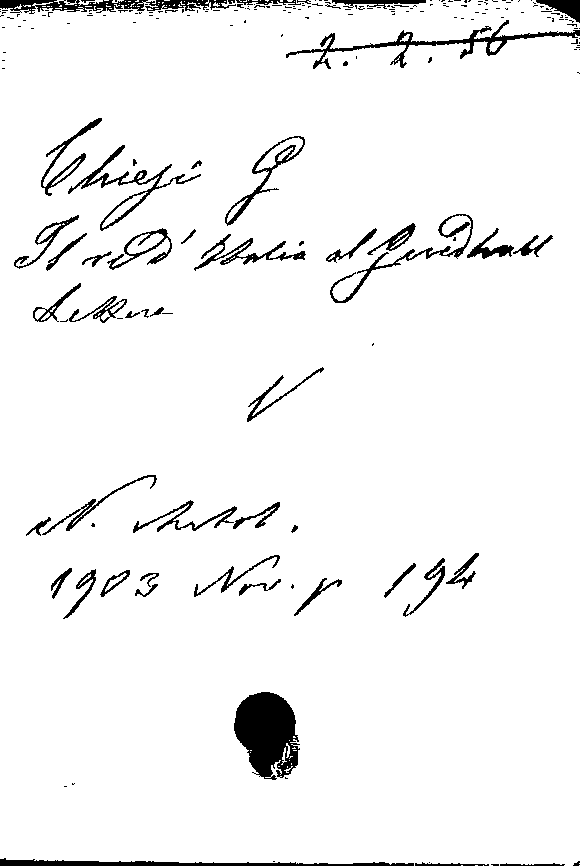 2. 2. 56
Chiesi G
Il re d'Italia al Guildhall
Lettere
V
N. Antol.
1903 Nov. p 194